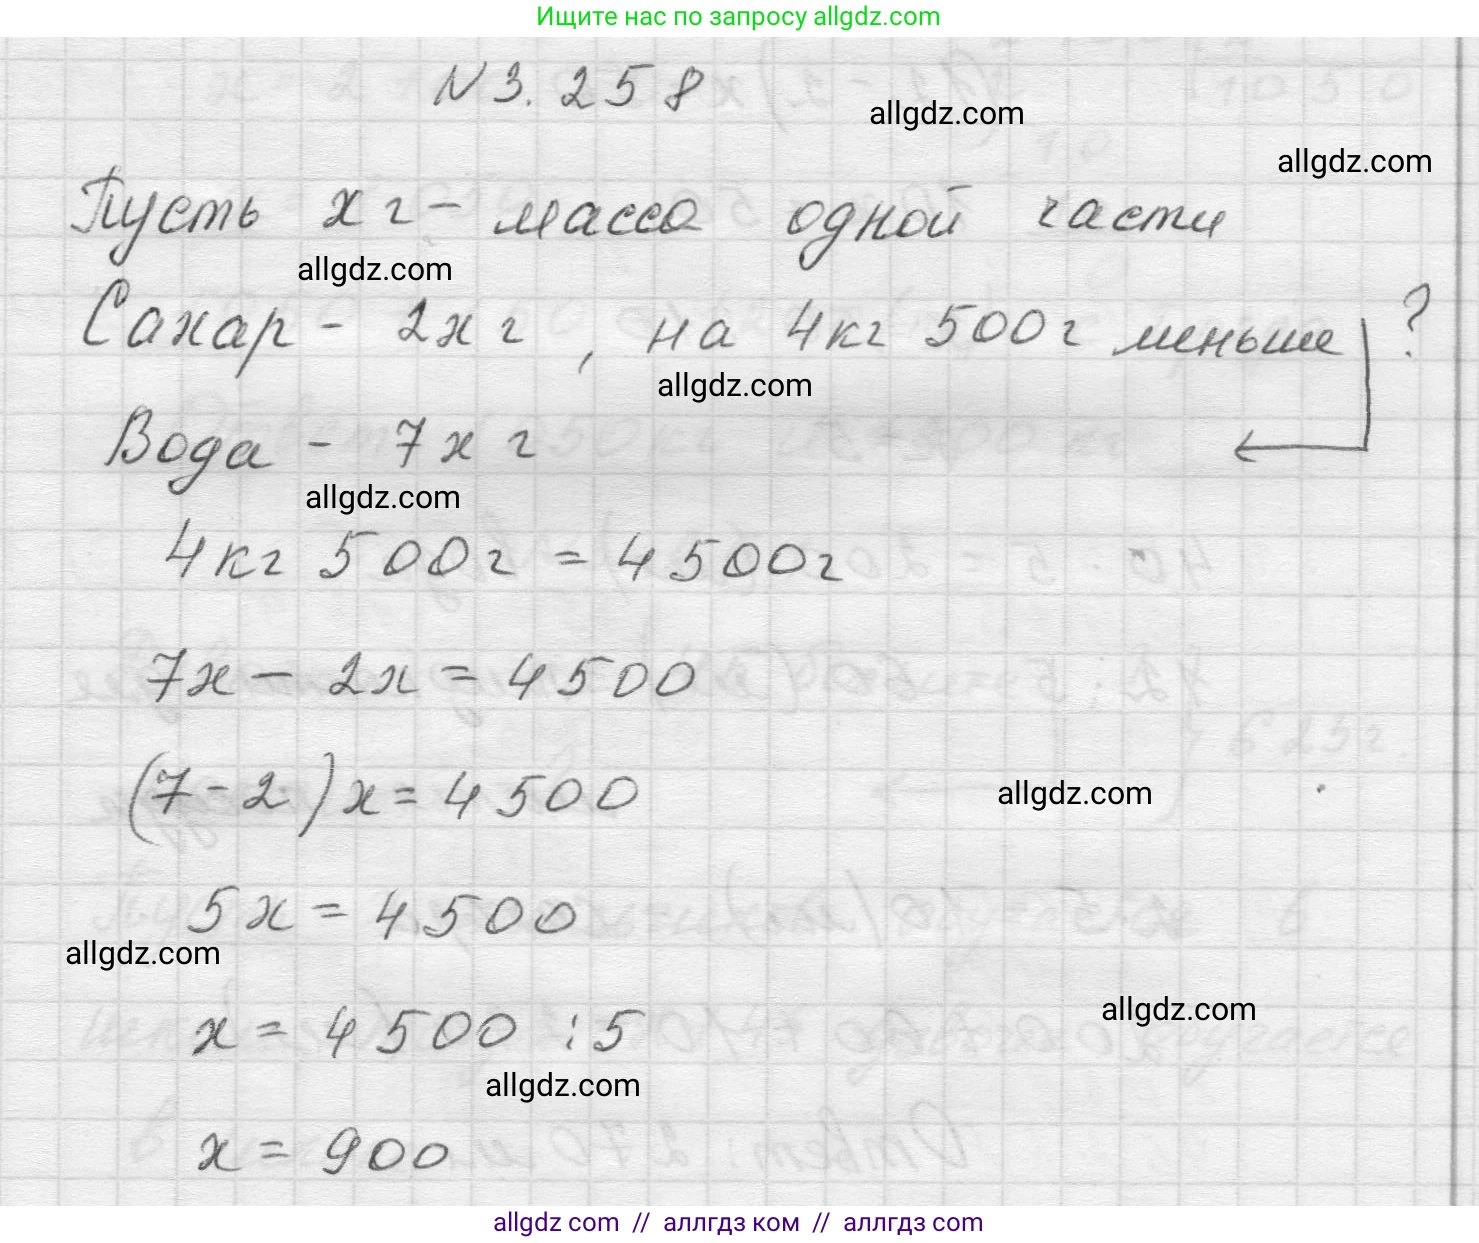 Ищите нас по запросу allgdz.com
N 3.258
allgdz.com
allgdz.com
Пусть х г - масса одной части
allgdz.com
Сахар - 2х г, на 4кг 500г меньше ?
allgdz.com
Вода - 7х г
allgdz.com
4кг 500г = 4500г
7х - 2х = 4500
(7-2)х = 4500
allgdz.com
5х = 4500
allgdz.com
х = 4500 : 5
allgdz.com
allgdz.com
х = 900
allgdz com // аллгдз ком // аллгдз com